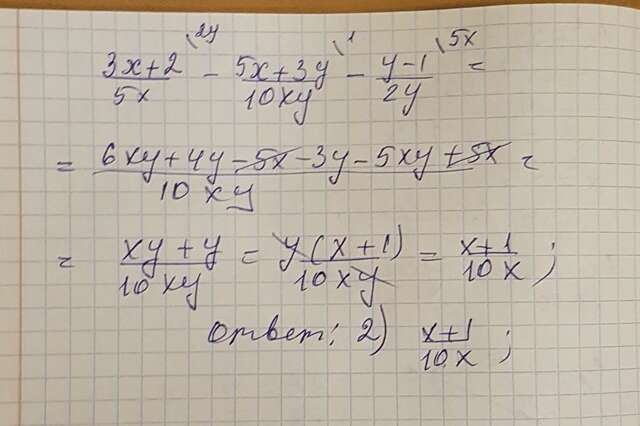 (3x+2)/5x \2y − (5x+3y)/10xy \1 − (y−1)/2y \5x =
= (6xy+4y−5x−3y−5xy+5x)/10xy =
= (xy+y)/10xy = y(x+1)/10xy = (x+1)/10x ;
Ответ: 2) (x+1)/10x ;